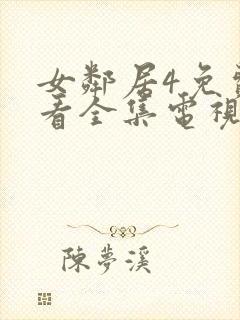 女鄰居4免
看全集電視
陳夢溪